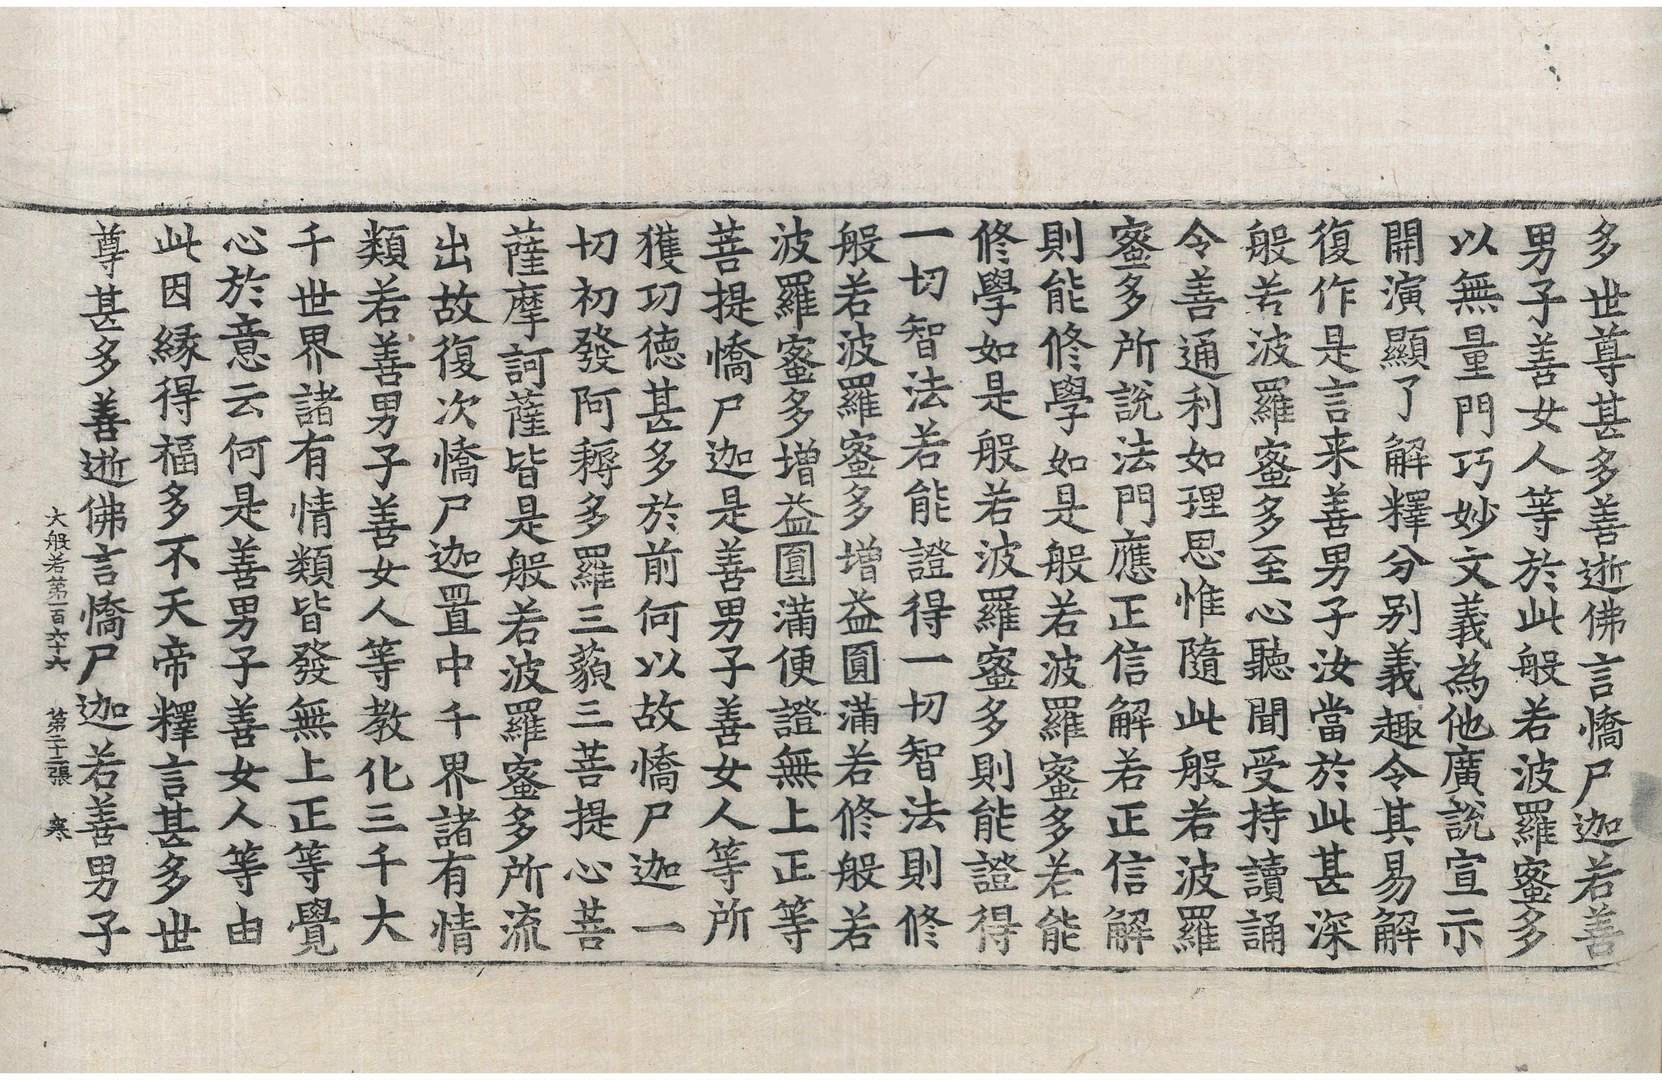 多世尊甚多善逝佛言憍尸迦若善
男子善女人等於此般若波羅蜜多
以無量門巧妙文義為他廣說宣示
開演顯了解釋分別義趣令其易解
復作是言来善男子汝當於此甚深
般若波羅蜜多至心聽聞受持讀誦
令善通利如理思惟隨此般若波羅
蜜多所說法門應正信解若正信解
則能修學如是般若波羅蜜多若能
修學如是般若波羅蜜多則能證得
一切智法若能證得一切智法則修
般若波羅蜜多增益圓滿若修般若
波羅蜜多增益圓滿便證無上正等
菩提憍尸迦是善男子善女人等所
獲功德甚多於前何以故憍尸迦一
切初發阿耨多羅三藐三菩提心菩
薩摩訶薩皆是般若波羅蜜多所流
出故復次憍尸迦置中千界諸有情
類若善男子善女人等教化三千大
千世界諸有情類皆發無上正等覺
心於意云何是善男子善女人等由
此因緣得福多不天帝釋言甚多世
尊甚多善逝佛言憍尸迦若善男子
大般若第一百六十六　第二十三張　寒